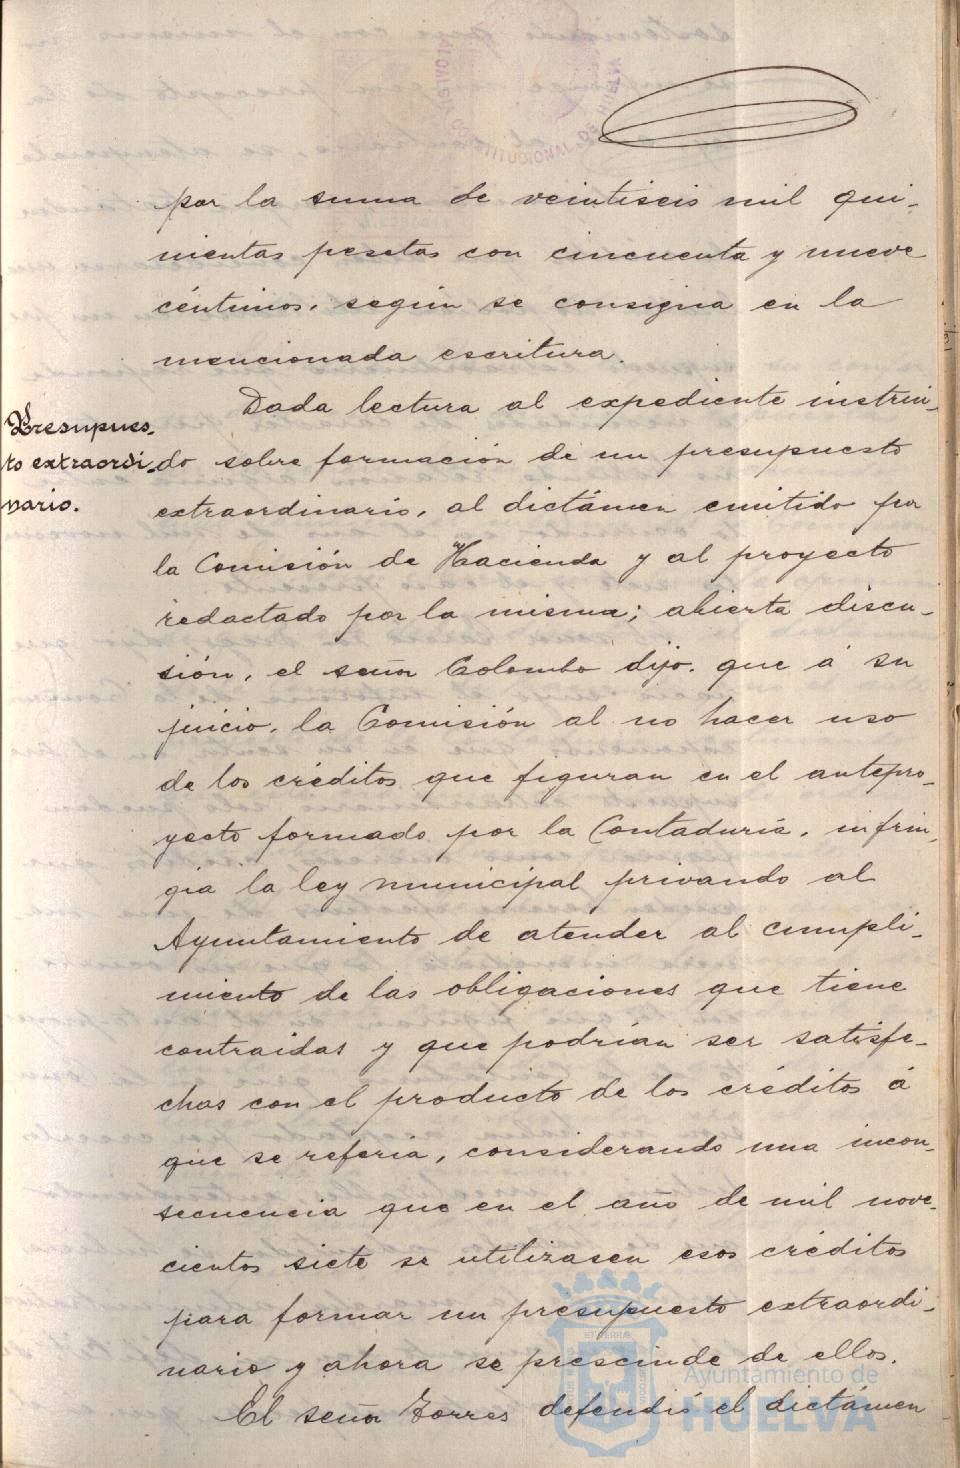 por la suma de veintiseis mil qui-
nientas pesetas con cincuenta y nueve
céntimos, según se consigna en la
mencionada escritura.
Presupues-
to extraordi-
nario.
Dada lectura al expediente instrui-
do sobre formación de un presupuesto
extraordinario, al dictámen emitido por
la Comisión de Hacienda y al proyecto
redactado por la misma; abierta discu-
sión, el señor Colombo dijo, que á su
juicio, la Comisión al no hacer uso
de los créditos que figuran en el antepro-
yecto formado por la Contaduría, infrin-
gia la ley municipal privando al
Ayuntamiento de atender al cumpli-
miento de las obligaciones que tiene
contraidas y que podrían ser satisfe-
chas con el producto de los créditos á
que se referia, considerando una incon-
secuencia que en el año de mil nove-
cientos siete se utilizasen esos créditos
para formar un presupuesto extraordi-
nario y ahora se prescinde de ellos.
El señor Torres defendió el dictámen
Ayuntamiento de
HUELVA